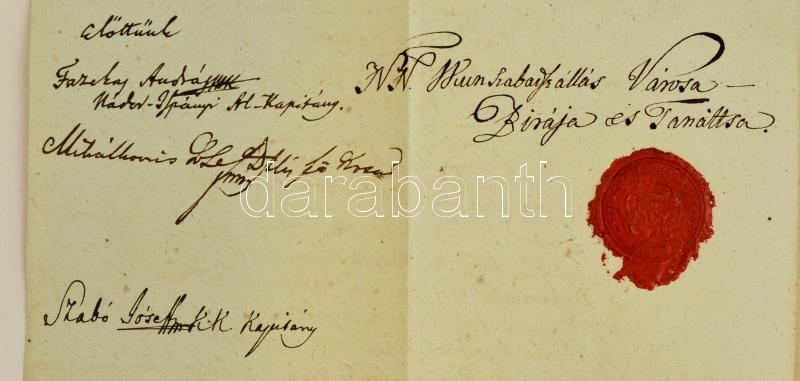 Előttünk
Fazekas András
Nádor-Ispányi Al-Kapitány.
Mihálkovis
Szabó Jósef K. K. Kapitány
N. N. Kunszabadszállás Városa
Birája és Tanáttsa.
darabanth